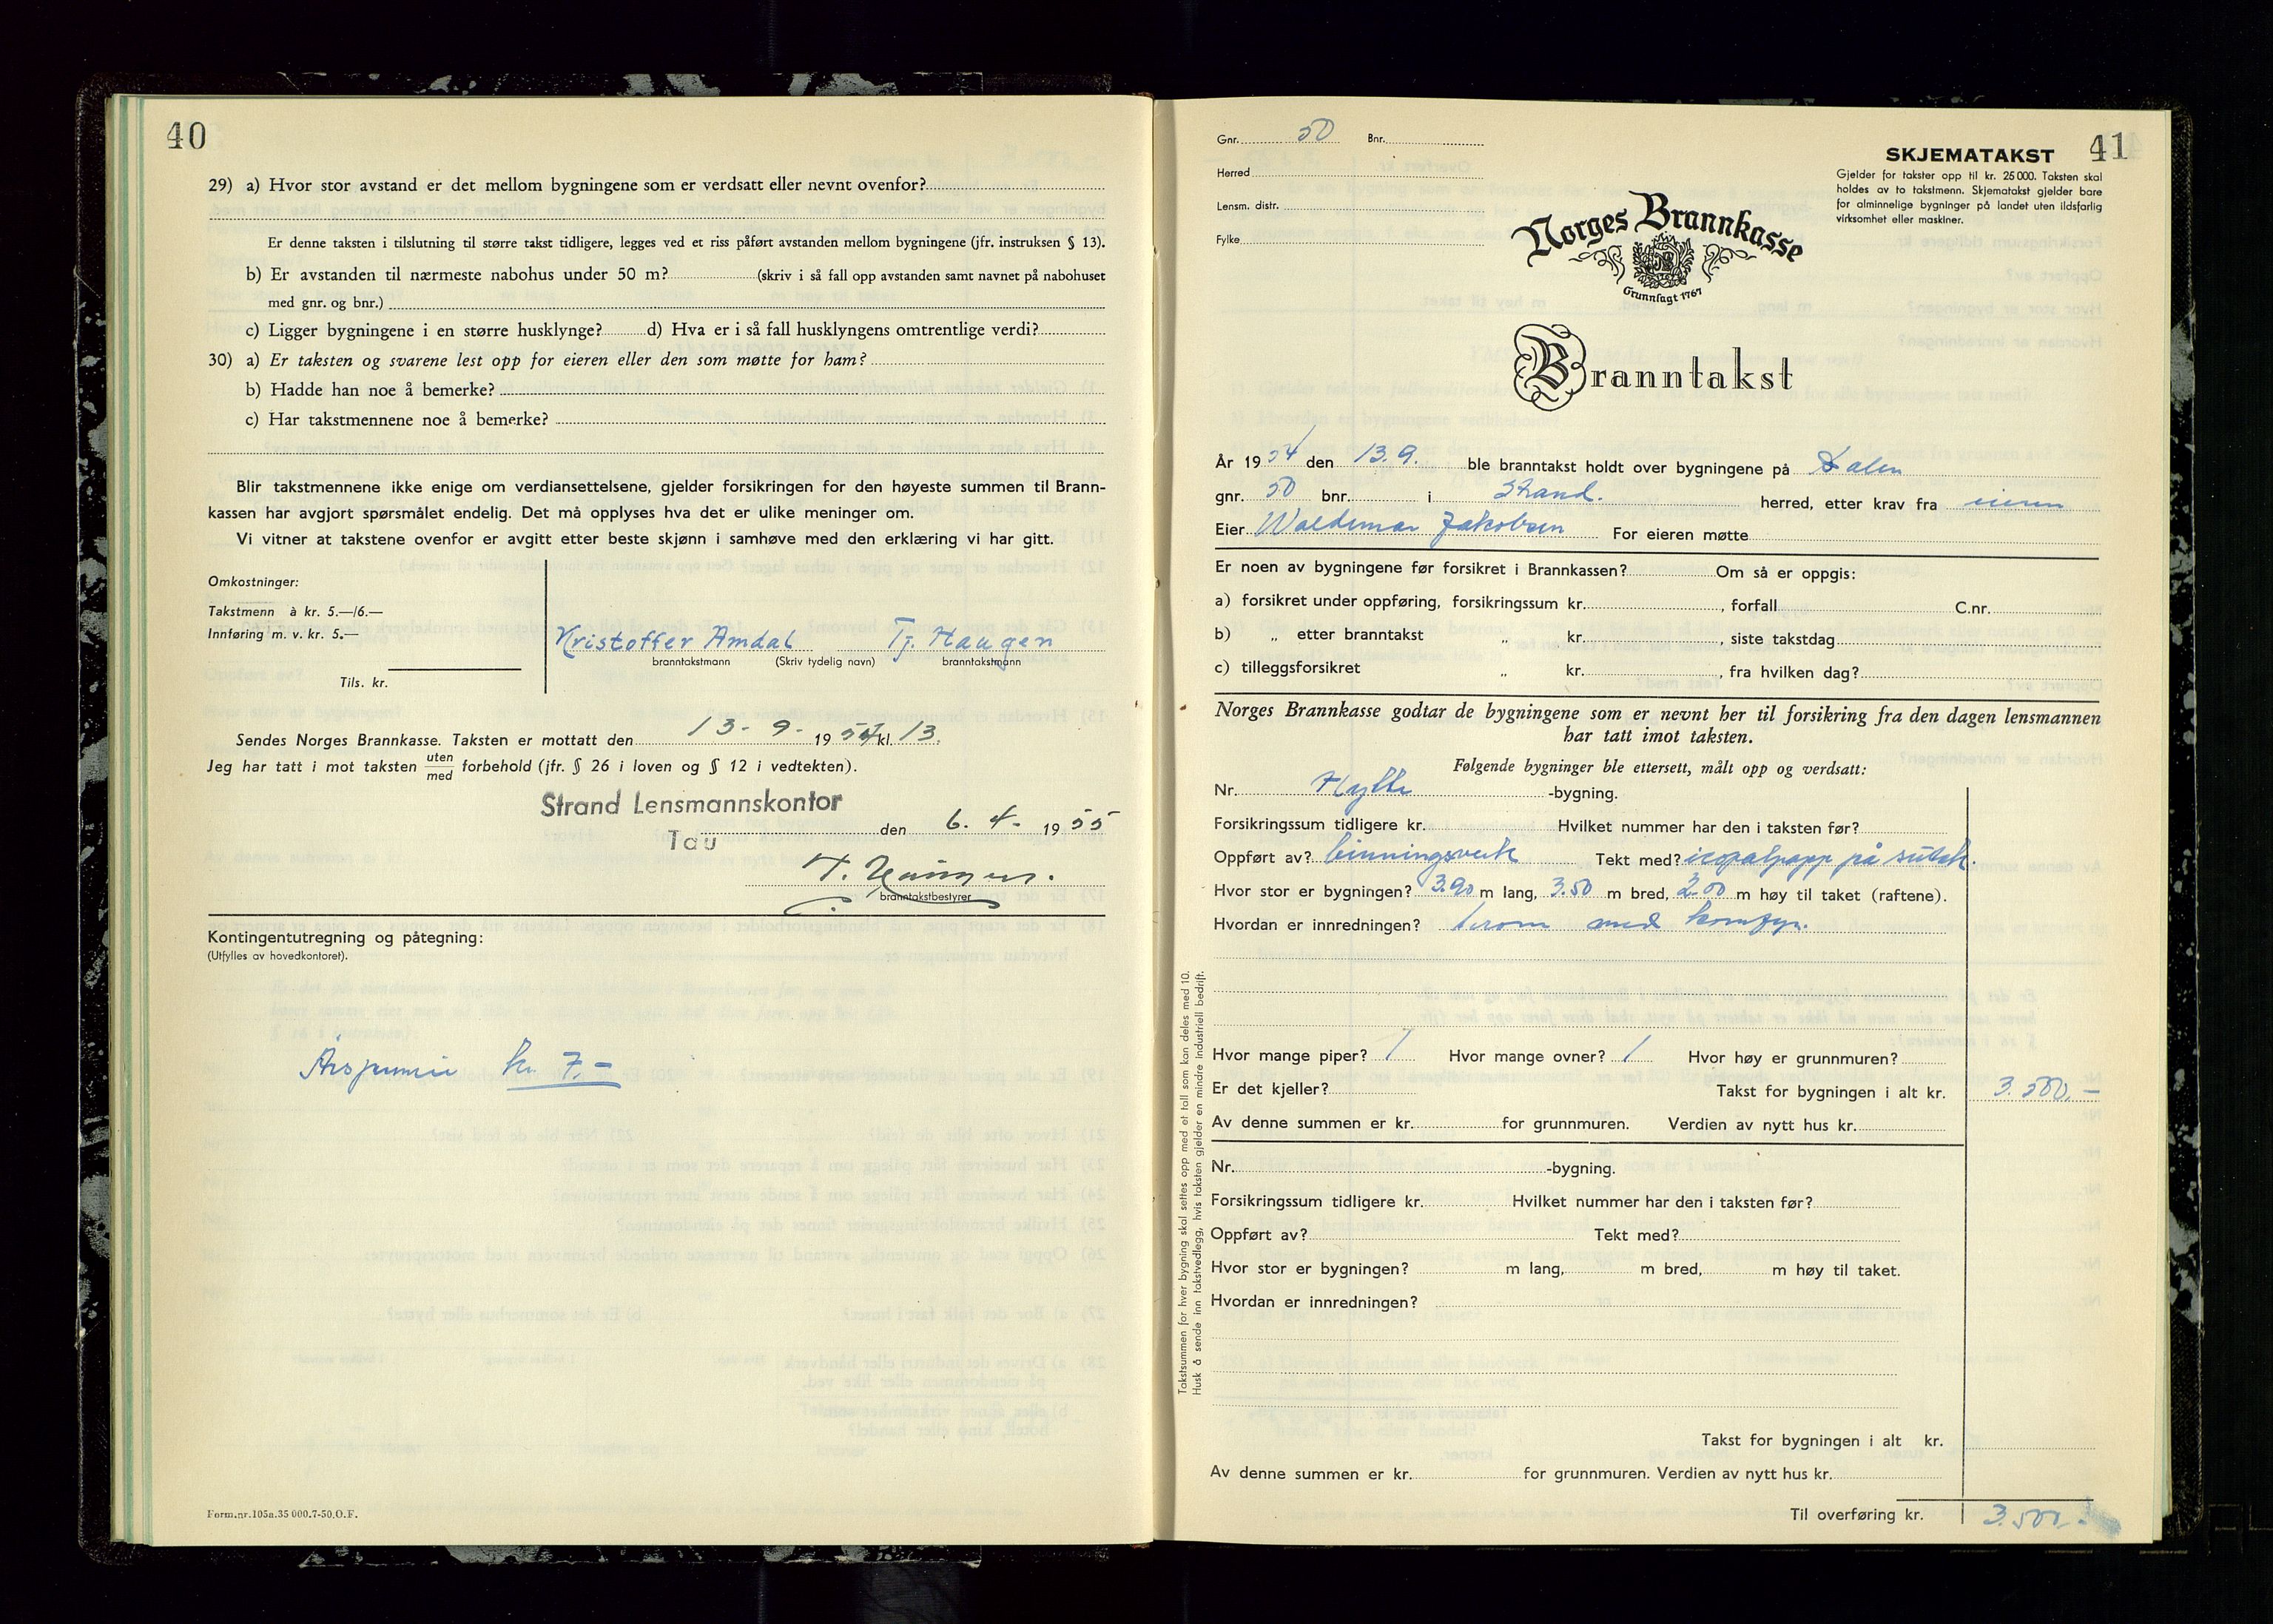 40
29) a) Hvor stor avstand er det mellom bygningene som er verdsatt eller nevnt ovenfor?
Er denne taksten i tilslutning til større takst tidligere, legges ved et riss påført avstanden mellom bygningene (jfr. instruksen § 13).
b) Er avstanden til nærmeste nabohus under 50 m? (skriv i så fall opp avstanden samt navnet på nabohuset
med gnr. og bnr.)
c) Ligger bygningene i en større husklynge? d) Hva er i så fall husklyngens omtrentlige verdi?
30) a) Er taksten og svarene lest opp for eieren eller den som møtte for ham?
b) Hadde han noe å bemerke?
c) Har takstmennene noe å bemerke?
Blir takstmennene ikke enige om verdiansettelsene, gjelder forsikringen for den høyeste summen til Brann-
kassen har avgjort spørsmålet endelig. Det må opplyses hva det er ulike meninger om.
Vi vitner at takstene ovenfor er avgitt etter beste skjønn i samhøve med den erklæring vi har gitt.
Omkostninger:
Takstmenn à kr. 5.—/6.—
Innføring m. v. kr. 5.—
Tils. kr.
Kristoffer Amdal Tj. Haugen
branntakstmann (Skriv tydelig navn) branntakstmann
Sendes Norges Brannkasse. Taksten er mottatt den 13-9- 1954 kl. 13.
Jeg har tatt i mot taksten uten/med forbehold (jfr. § 26 i loven og § 12 i vedtekten).
Strand Lensmannskontor
Tau den 6. 4- 1955
branntakstbestyrer
Kontingentutregning og påtegning:
(Utfylles av hovedkontoret).
Årspremie kr. 7.-
Form.nr.105a.35 000.7-50.O.F.
41
Gnr. 50 Bnr.
Herred
Lensm. distr.
Fylke
SKJEMATAKST
Gjelder for takster opp til kr. 25 000. Taksten skal
holdes av to takstmenn. Skjematakst gjelder bare
for alminnelige bygninger på landet uten ildsfarlig
virksomhet eller maskiner.
Norges Brannkasse
Grunnlagt 1767
Branntakst
År 1954 den 13.9. ble branntakst holdt over bygningene på Dalen
gnr. 50 bnr. i Strand. herred, etter krav fra eieren
Eier Waldemar Jakobsen For eieren møtte
Er noen av bygningene før forsikret i Brannkassen? Om så er oppgis:
a) forsikret under oppføring, forsikringssum kr. , forfall C.nr.
b) „ etter branntakst „ kr. , siste takstdag
c) tilleggsforsikret „ kr. , fra hvilken dag?
Norges Brannkasse godtar de bygningene som er nevnt her til forsikring fra den dagen lensmannen
har tatt imot taksten.
Følgende bygninger ble ettersett, målt opp og verdsatt:
Nr. Hytte -bygning.
Forsikringssum tidligere kr. Hvilket nummer har den i taksten før?
Oppført av? binningsverk Tekt med? icopalpapp på sutak.
Hvor stor er bygningen? 3.90 m lang, 3.50 m bred, 2.00 m høy til taket (raftene).
Hvordan er innredningen? 1 rom med komfyr.
Hvor mange piper? 1 Hvor mange ovner? 1 Hvor høy er grunnmuren?
Er det kjeller? Takst for bygningen i alt kr. 3.500.-
Av denne summen er kr. for grunnmuren. Verdien av nytt hus kr.
Nr. -bygning.
Forsikringssum tidligere kr. Hvilket nummer har den i taksten før?
Oppført av? Tekt med?
Hvor stor er bygningen? m lang, m bred, m høy til taket.
Hvordan er innredningen?
Takst for bygningen i alt kr.
Av denne summen er kr. for grunnmuren. Verdien av nytt hus kr.
Til overføring kr. 3.500.-
Takstsummen for hver bygning skal settes opp med et tall som kan deles med 10.
Husk å sende inn takstvedlegg, hvis taksten gjelder en mindre industriell bedrift.